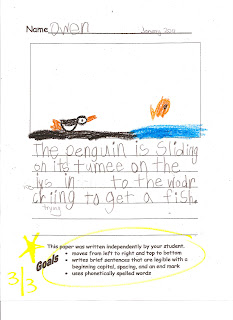 Name Owen January 2011
The penguin is Sliding
on its tumee on the
iys in to the wodr
chriing to get a fish.
trying
This paper was written independently by your student.
Goals
• moves from left to right and top to bottom
• writes brief sentences that are legible with a
beginning capital, spacing, and an end mark
• uses phonetically spelled words
3/3